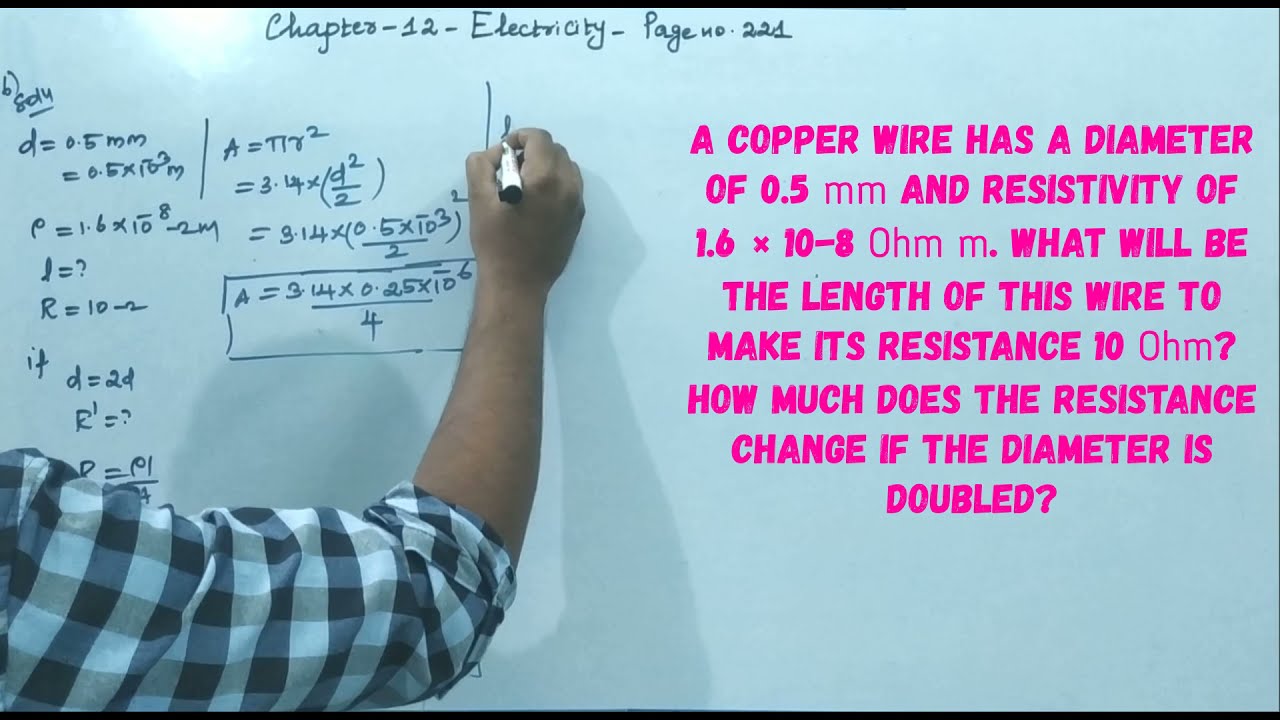 Chapter-12-Electricity- Page no. 221
b)
Soln
d = 0.5 mm
= 0.5×10⁻³m
ρ = 1.6×10⁻⁸ Ωm
l = ?
R = 10 Ω
if
d = 2d
R' = ?
R = ρl
A
A = πr²
= 3.14×(d²/2)
= 3.14×(0.5×10⁻³/2)²
A = 3.14×0.25×10⁻⁶/4
l
A COPPER WIRE HAS A DIAMETER
OF 0.5 mm AND RESISTIVITY OF
1.6 × 10–8 Ohm m. WHAT WILL BE
THE LENGTH OF THIS WIRE TO
MAKE ITS RESISTANCE 10 Ohm?
HOW MUCH DOES THE RESISTANCE
CHANGE IF THE DIAMETER IS
DOUBLED?